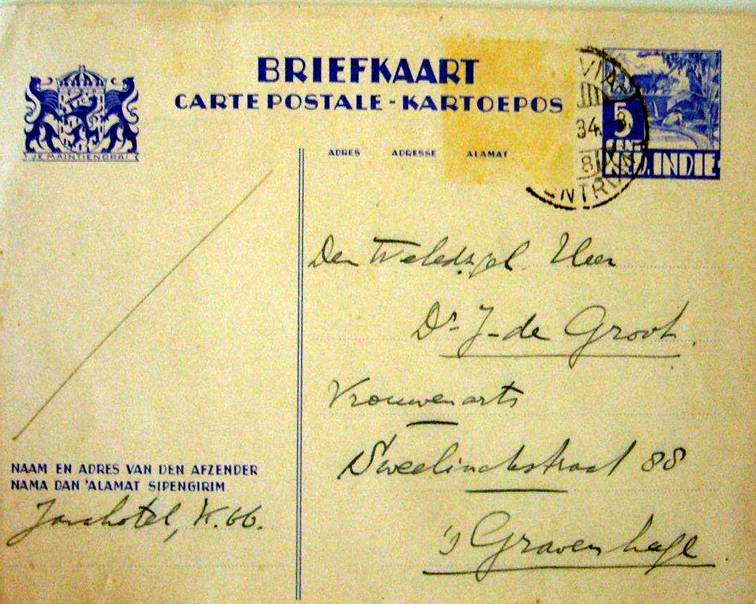 BRIEFKAART
CARTE POSTALE - KARTOEPOS
JE MAINTIENDRAI
ADRES ADRESSE ALAMAT
34.
8
ENTRUM
5
CENT
NED. INDIE
Den Weledzgel. Heer
Dr. J. de Groot.
Vrouwenarts
Sweelinckstraat 88
's Gravenhage.
NAAM EN ADRES VAN DEN AFZENDER
NAMA DAN 'ALAMAT SIPENGIRIM
Javahotel, K. 66.